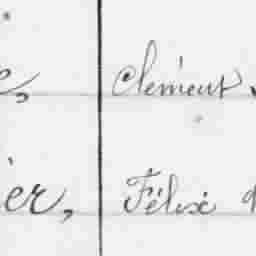 e, Clément
ier, Félix